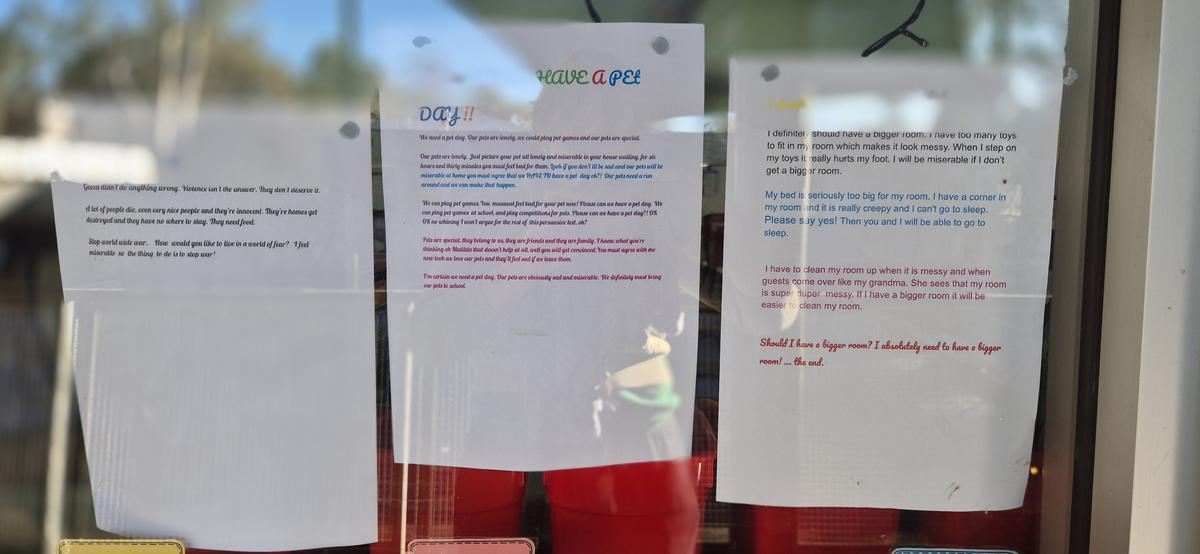 Gaza didn't do anything wrong. Violence isn't the answer. They don't deserve it.
A lot of people die, even very nice people and they're innocent. They're homes get
destroyed and they have no where to stay. They need food.
Stop world wide war. How would you like to live in a world of fear? I feel
miserable so the thing to do is to stop war!
HAVE A PET
DAY!!
We need a pet day. Our pets are lonely, we could play pet games and our pets are special.
Our pets are lonely. Just picture your pet all lonely and miserable in your house waiting, for six
hours and thirty minutes you must feel bad for them. Look if you don't ill be sad and our pets will be
miserable at home you must agree that we HAVE TO have a pet day oh?! Our pets need a run
around and we can make that happen.
We can play pet games. You muuuust feel bad for your pet now! Please can we have a pet day. We
can play pet games at school, and play competitions for pets. Please can we have a pet day?! OK
OK no whining I won't argue for the rest of this persuasive text, ok?
Pets are special, they belong to us, they are friends and they are family. I know what you're
thinking oh Matilda that doesn't help at all, well you will get convinced. You must agree with me
now look we love our pets and they'll feel sad if we leave them.
I'm certain we need a pet day. Our pets are obviously sad and miserable. We definitely must bring
our pets to school.
I definitely should have a bigger room. I have too many toys
to fit in my room which makes it look messy. When I step on
my toys it really hurts my foot. I will be miserable if I don't
get a bigger room.
My bed is seriously too big for my room, I have a corner in
my room and it is really creepy and I can't go to sleep.
Please say yes! Then you and I will be able to go to
sleep.
I have to clean my room up when it is messy and when
guests come over like my grandma. She sees that my room
is super duper messy. If I have a bigger room it will be
easier to clean my room.
Should I have a bigger room? I absolutely need to have a bigger
room! ... the end.